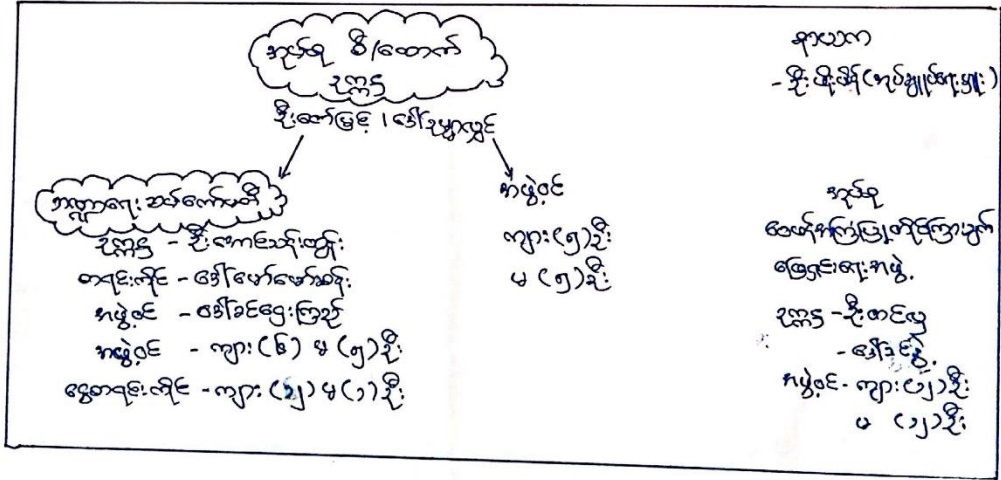 အုပ်စု စီ/ထောက်
ဥက္ကဋ္ဌ
ဦးဇော်မြင့် / ဒေါ်ဥမ္မာလွင်
ဘဏ္ဍာရေး ဆပ်ကော်မတီ
ဥက္ကဋ္ဌ - ဦးအောင်သန်းထွန်း
စာရင်းကိုင် - ဒေါ်မော်မော်ဆန်း
အဖွဲ့ဝင် - ဒေါ်ခင်ဌေးကြည်
အဖွဲ့ဝင် - ကျား (၆) မ (၅) ဦး
ငွေစာရင်းကိုင် - ကျား (၁၂) မ (၁) ဦး
အဖွဲ့ဝင်
ကျား (၅) ဦး
မ (၅) ဦး
နာယက
- ဦး (အုပ်ချုပ်ရေးမှူး)
အုပ်စု
ဝေဖန်အကြံပြုတိုင်ကြားချက်
ဖြေရှင်းရေးအဖွဲ့
ဥက္ကဋ္ဌ - ဦးတင်လှ
- ဒေါ်ခင်နွဲ့
အဖွဲ့ဝင် - ကျား (၁၂) ဦး
မ (၁၂) ဦး